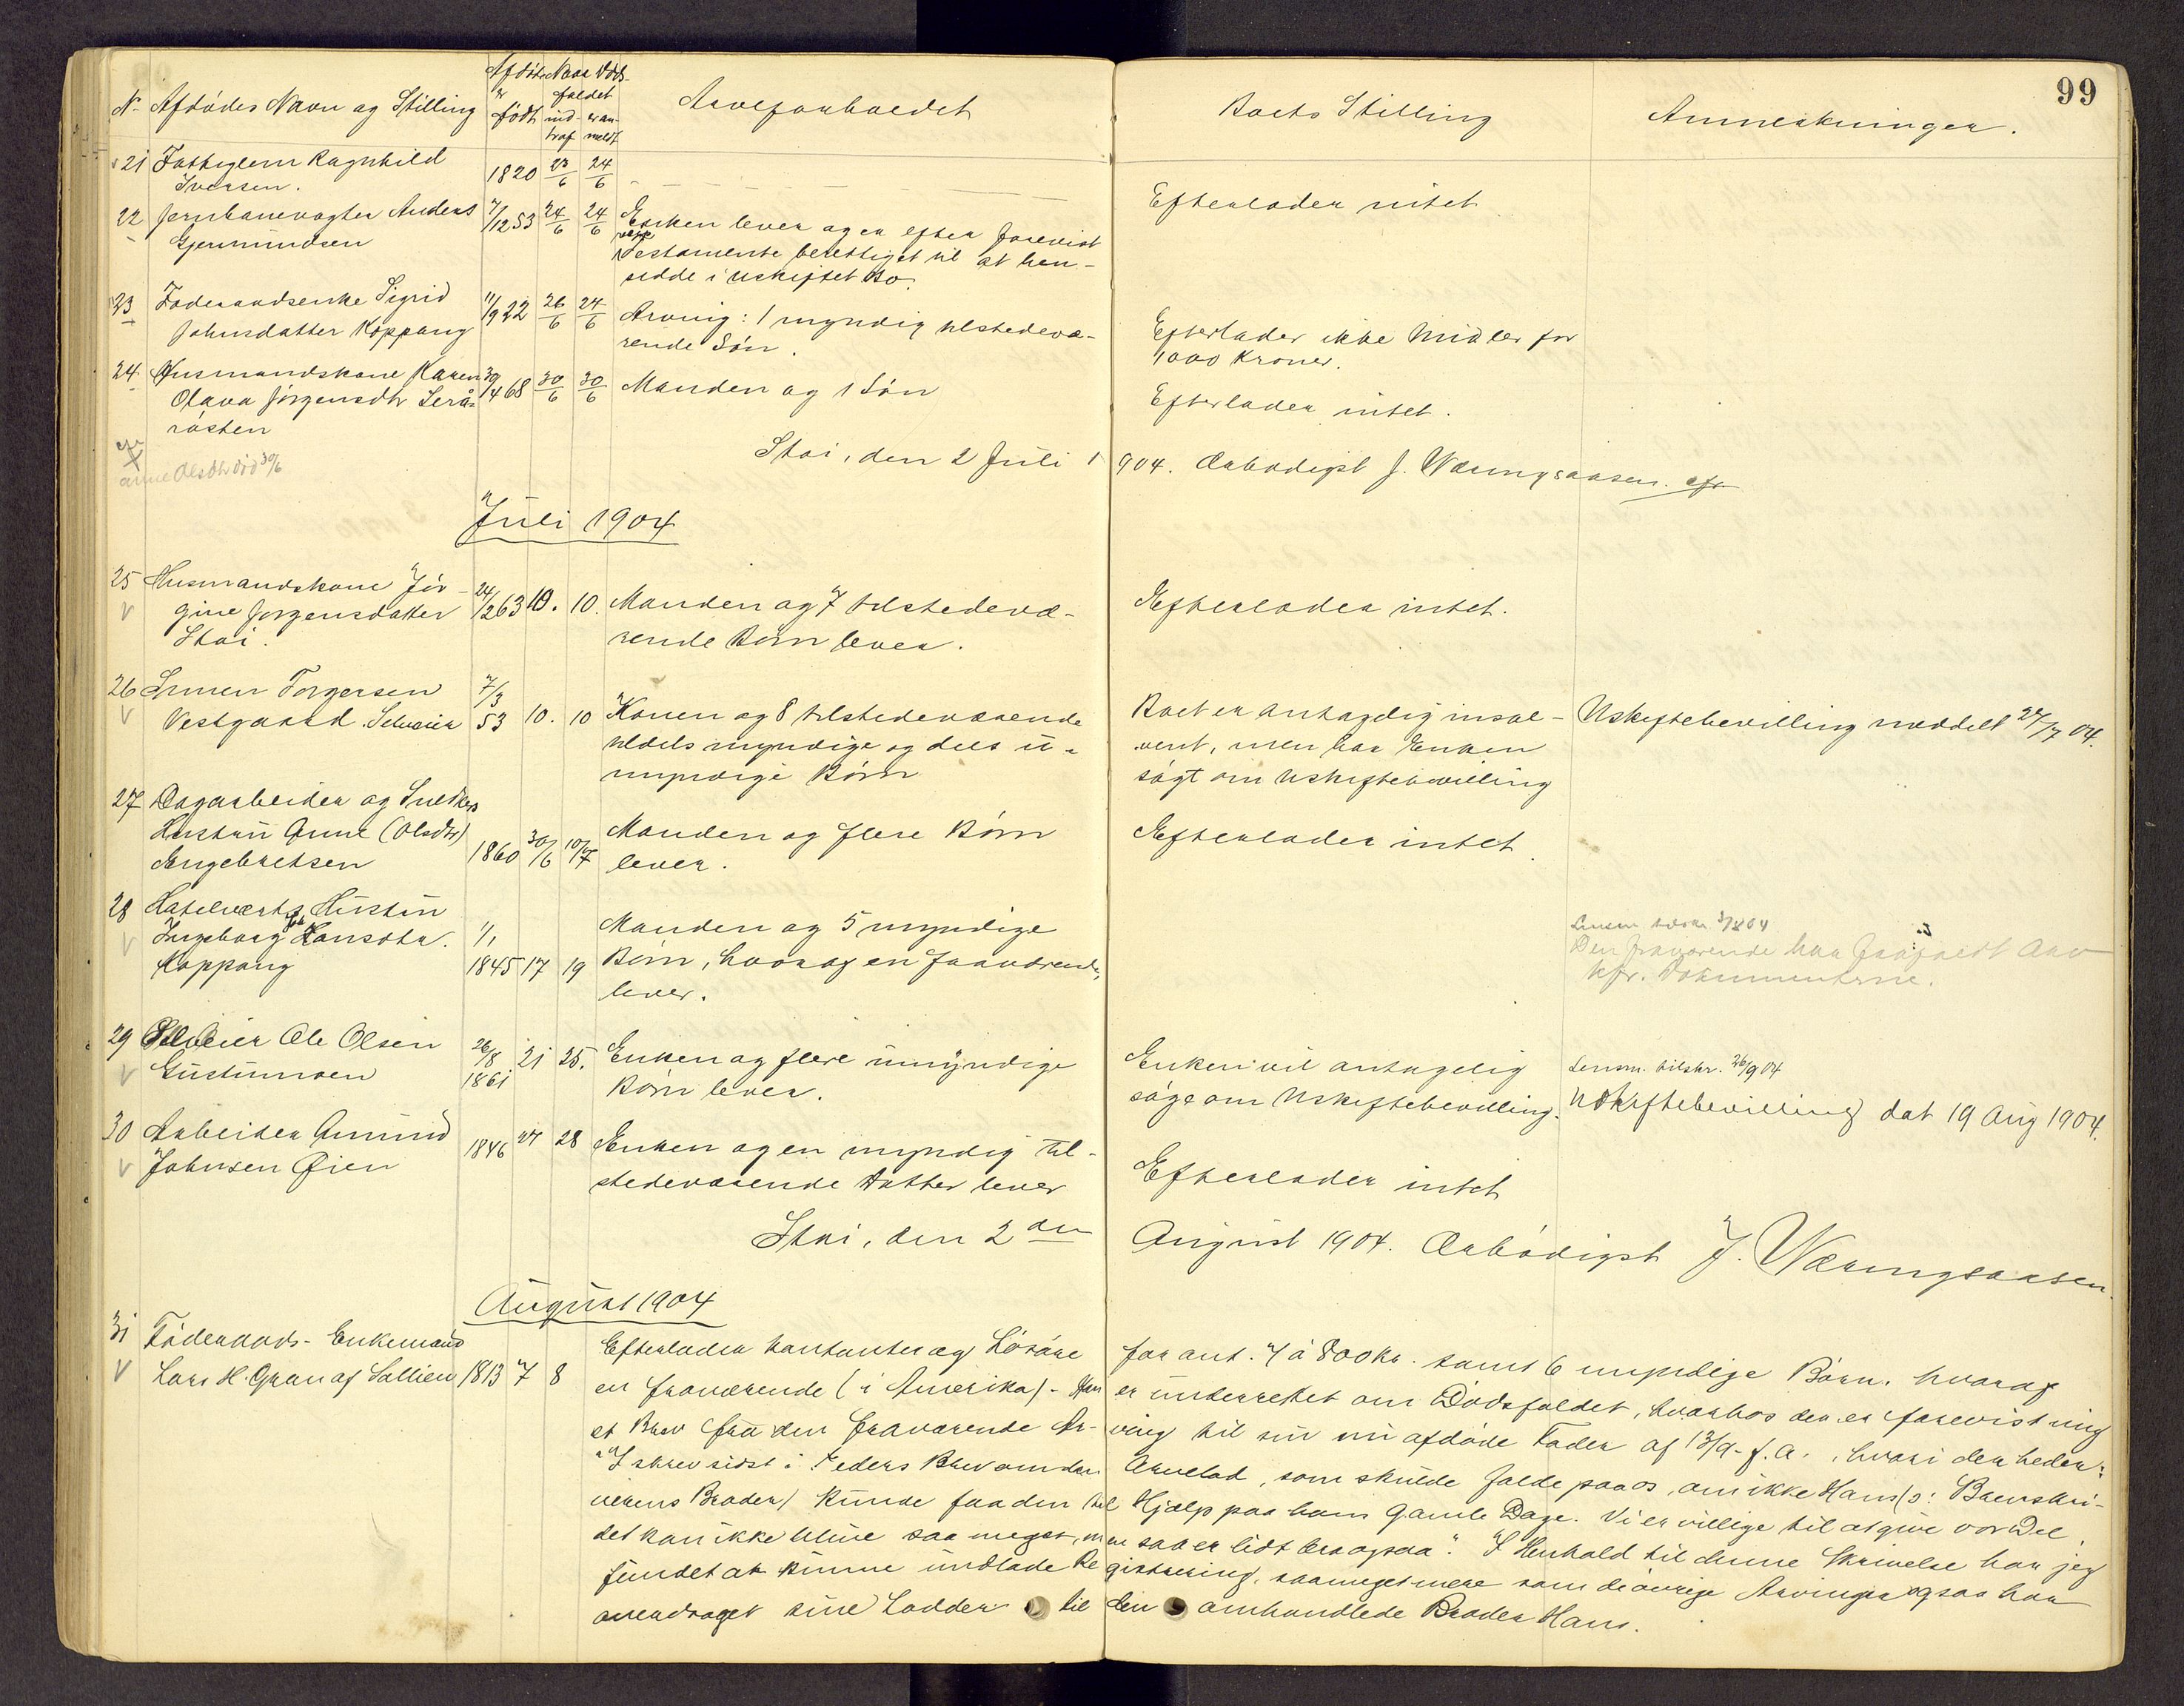 99
N. Afdødes Navn og Stilling
Afdøde er født
Naar Dødsfaldet indtraf er anmeldt
Arveforholdet
Boets Stilling
Anmerkninger.
21 Fattiglem Ragnhild 1820 23/6 24/6 Efterlader intet
Iversen.
22 Jernbanevogter Anders 7/12 53 24/6 24/6 Enken lever og er efter forevist
Gjermundsen
Testamente berettiget til at hen-
sidde i uskiftet Bo.
23 Føderaadsenke Sigrid 11/9 22 26/6 24/6 Arving: 1 myndig tilstedevæ- Efterlader ikke Midler for
Johnsdatter Koppang rende Søn. 1000 Kroner.
24 Husmandskone Karen 30/4 68 30/6 30/6 Manden og 1 Søn Efterlader intet.
Olava Jørgensdtr
røsten
Anne Olsdtr død 30/6
Stai, den 2 Juli 1904. Ærbødigst J. Væringsaasen.
Juli 1904
25 Husmandskone Jør- 24/12 63 10. 10. Manden og 7 tilstedevæ- Efterlader intet.
gine Jørgensdatter rende Børn lever.
Stai.
26 Simen Torgersen 7/3
Vestgaard Selveier 53 10. 10 Konen og 8 tilstedeværende Boet er antagelig insol- Uskiftebevilling meddelt 27/7 04.
tildels myndige og dels u- vent, men har Enken
myndige Børn søgt om Uskiftebevilling
27 Dagarbeider og Snedkers
Hustru Anne (Olsdtr) Manden og flere Børn Efterlader intet
Engebretsen 1860 30/6 10/7 lever.
28 Hotelværts Hustru
Ingeborg Hansdtr. 1/1 Manden og 5 myndige
Koppang 1845 17 19 Børn, hvoraf en fraværende, Den fraværende har frafaldt Arv
lever. kfr. Dokumenterne.
29 Selveier Ole Olsen 26/8 21 25. Enken og flere umyndige Enken vil antagelig Lensm. tilskr. 26/9 04
Gustumoen 1861 Børn lever. søge om Uskiftebevilling. Uskiftebevilling dat 19 Aug 1904.
30 Arbeider Amund 1846 27 28 Enken og en myndig til- Efterlader intet
Johnsen Øien stedeværende Datter lever
Stai, den 2den August 1904. Ærbødigst J. Væringsaasen.
August 1904
31 Føderaads-Enkemand Efterlader kontanter og Løsøre for ant. 7 à 800 Kr. samt 6 myndige Børn, hvoraf
Lars H. Gran af Sollien 1813 7 8 en fraværende (i Amerika) - Han er underrettet om Dødsfaldet, hvorhos der er forevist mig
et Brev fra den fraværende Ar-ving til sin nu afdøde Fader af 13/9 f. A., hvori der heder:
"I skrev sidst i Peders Brev om den Arvelod, som skulde falde paa os, om ikke Hans (o: Brevskri-
verens Broder) kunde faa den til Hjælp paa hans gamle Dage. Vi er villige til at give vor Del,
det kan ikke blive saa meget, men saa er lidt bra ogsaa". I Henhold til denne Skrivelse har jeg
fundet at kunne undlade Registrering, saameget mere som de øvrige Arvinger ogsaa har
overdraget sine Lodder til den omhandlede Broder Hans.